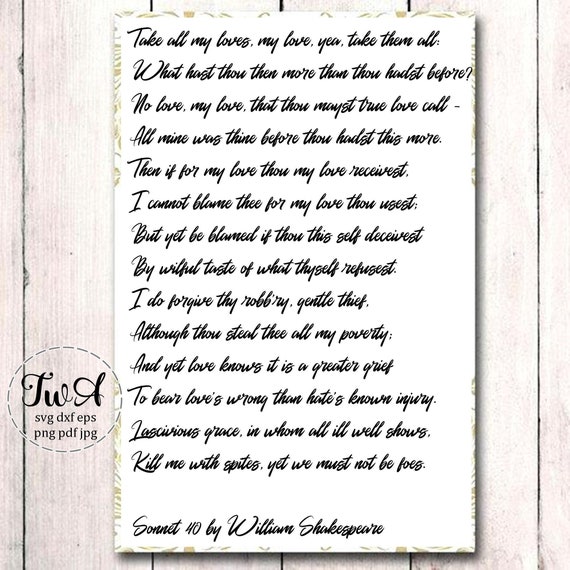 Take all my loves, my love, yea, take them all:
What hast thou then more than thou hadst before?
No love, my love, that thou mayst true love call -
All mine was thine before thou hadst this more.
Then if for my love thou my love receivest,
I cannot blame thee for my love thou usest;
But yet be blamed if thou this self deceivest
By wilful taste of what thyself refusest.
I do forgive thy robb'ry, gentle thief,
Although thou steal thee all my poverty;
And yet love knows it is a greater grief
To bear love's wrong than hate's known injury.
Lascivious grace, in whom all ill well shows,
Kill me with spites, yet we must not be foes.
Sonnet 40 by William Shakespeare
TwA
svg dxf eps
png pdf jpg